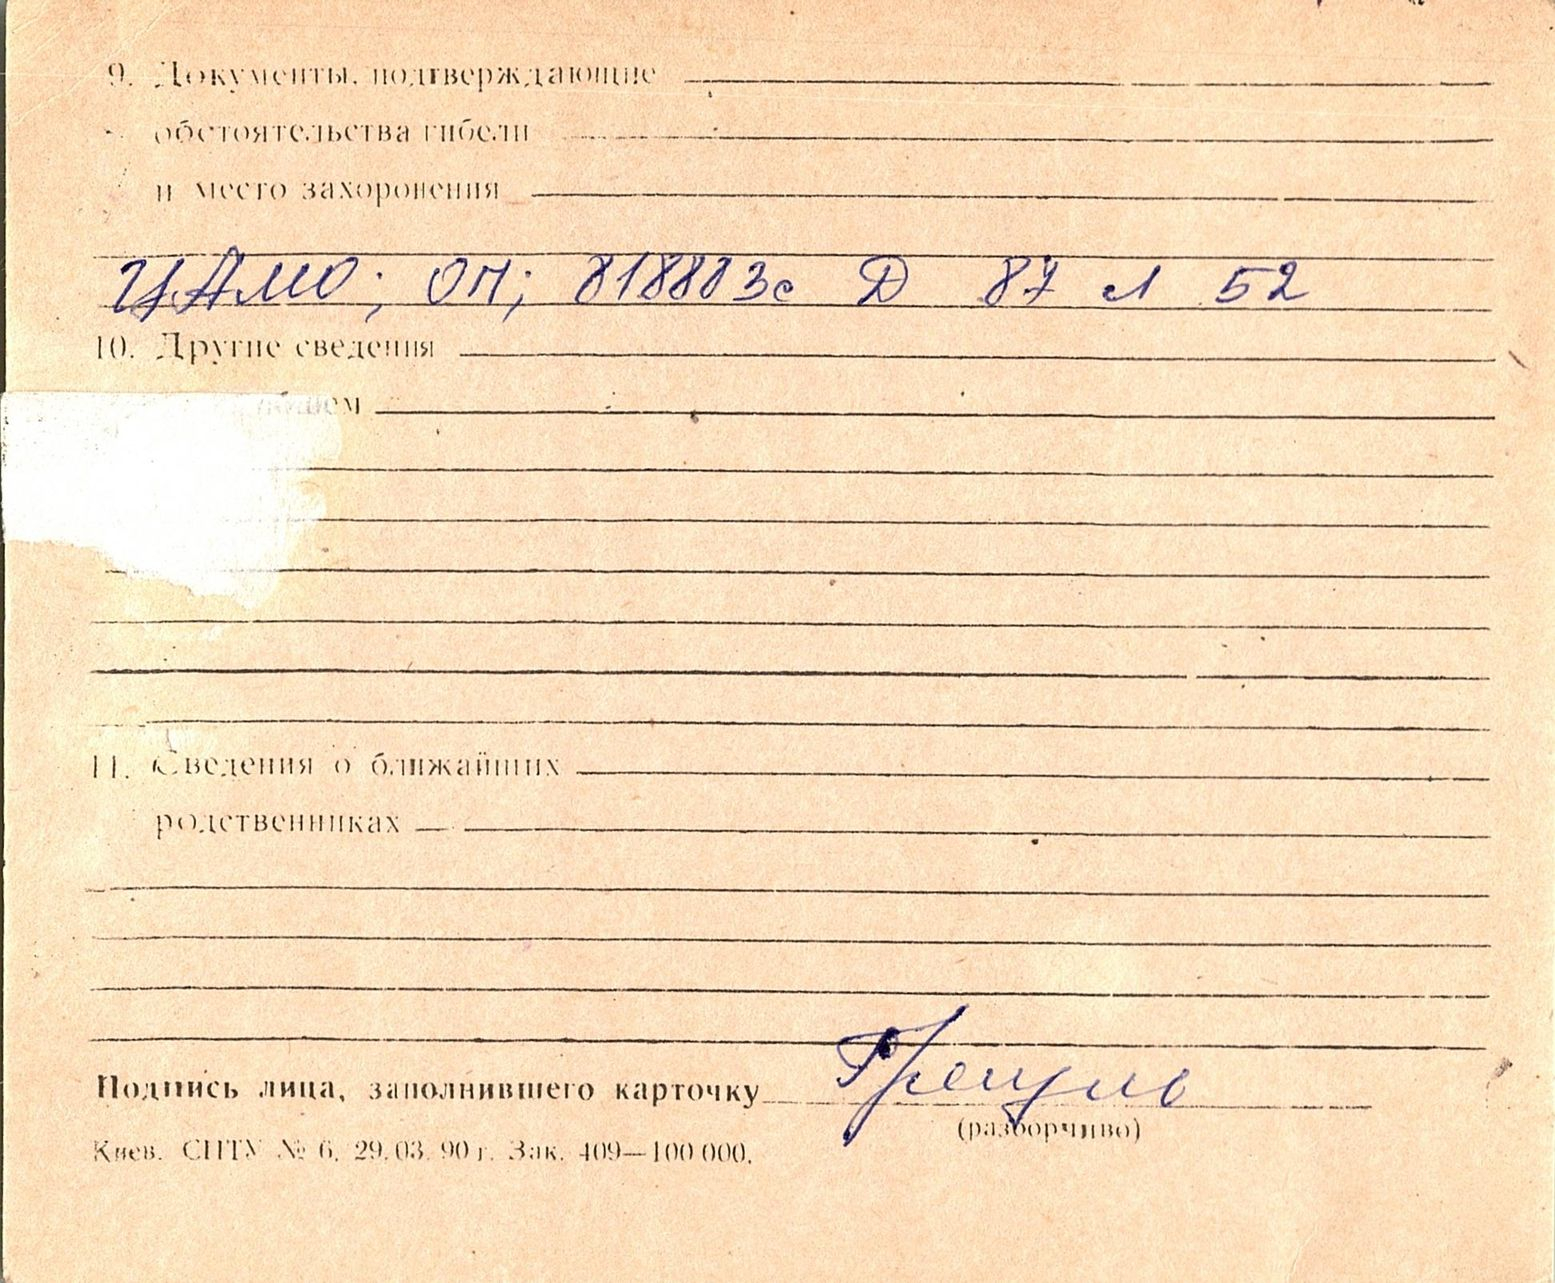 9. Документы, подтверждающие
обстоятельства гибели
и место захоронения
ЦАМО; оп; 818883с Д 87 л 52
10. Другие сведения
11. Сведения о ближайших
родственниках
Подпись лица, заполнившего карточку
(разборчиво)
Киев. СПТУ № 6. 29.03.90 г. Зак. 409—100 000.